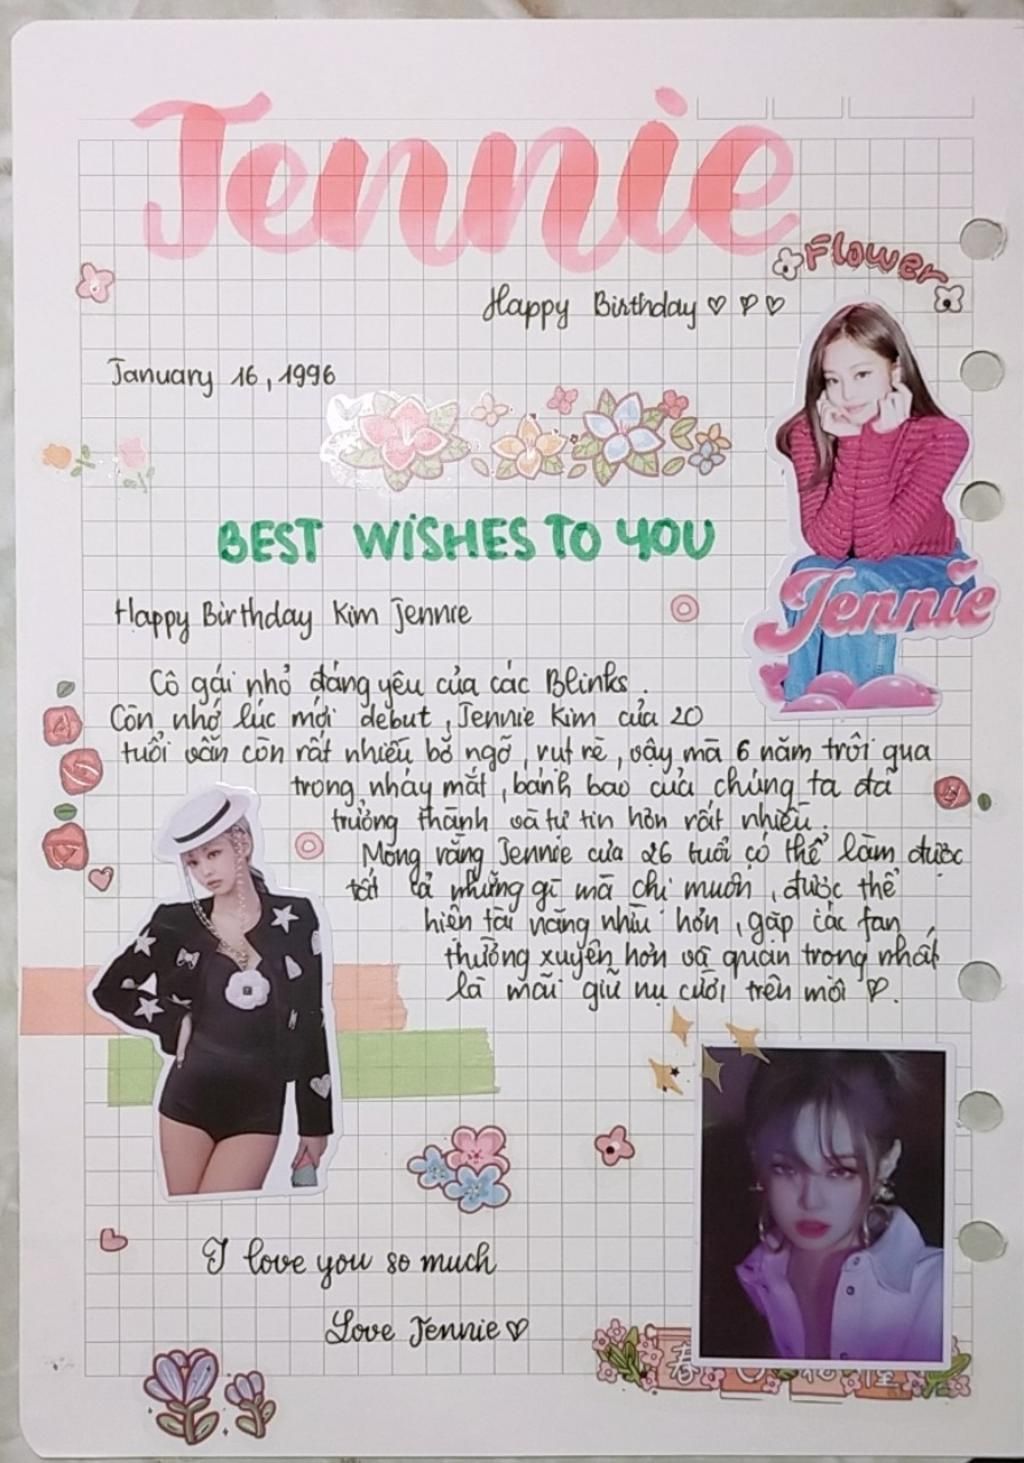 Jennie
Flower
Happy Birthday ♡ ♡ ♡
January 16, 1996
BEST WISHES TO YOU
Jennie
Happy Birthday Kim Jennie
Cô gái nhỏ đáng yêu của các Blinks.
Còn nhớ lúc mới debut, Jennie Kim của 20
tuổi vẫn còn rất nhiều bỡ ngỡ, rụt rè, vậy mà 6 năm trôi qua
trong nháy mắt, bánh bao của chúng ta đã
trưởng thành và tự tin hơn rất nhiều.
Mong rằng Jennie của 26 tuổi có thể làm được
tất cả những gì mà chị muốn, được thể
hiện tài năng nhìu hơn, gặp các fan
thường xuyên hơn và quan trọng nhất
là mãi giữ nụ cười trên môi ♡.
I love you so much
Love Jennie ♡
春